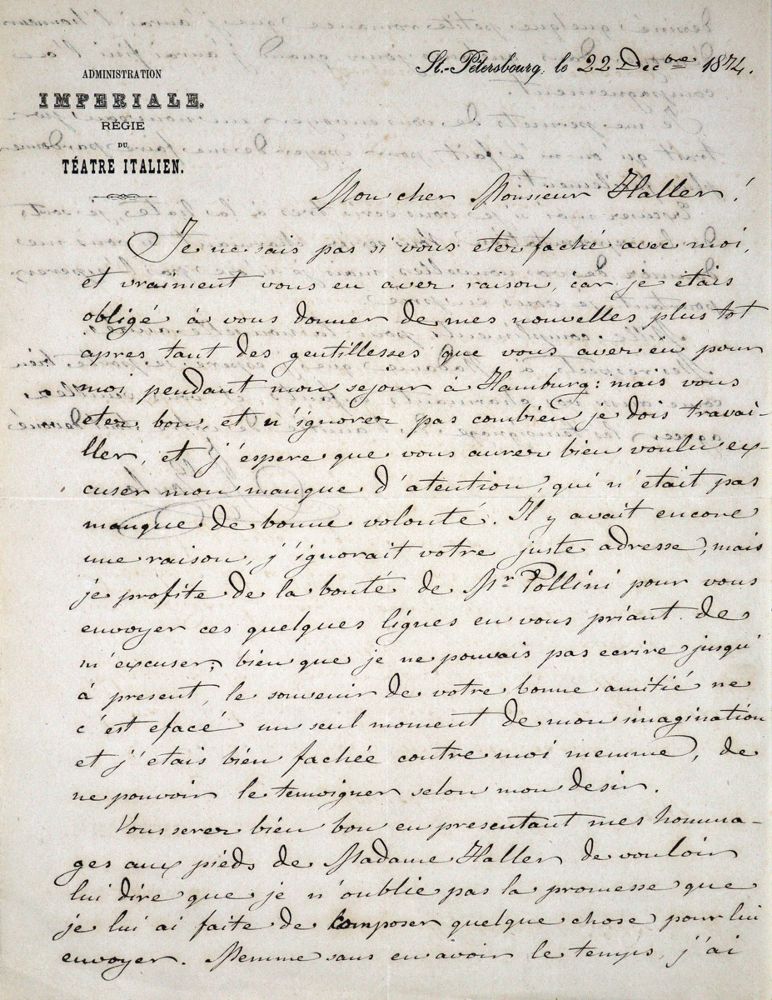 ADMINISTRATION
IMPERIALE.
RÉGIE
DU
TÉATRE ITALIEN.
St.-Pétersbourg, le 22 Decbre 1874.
Mon cher Monsieur Haller!
Je ne sais pas si vous etez faché avec moi,
et vraiment vous en avez raison, car je étais
obligé à vous donner de mes nouvelles plus tot
apres tant des gentillesses que vous avez eu pour
moi pendant mon sejour à Hamburg: mais vous
etez bon, et n'ignorez pas combien je dois travai-
ller, et j'espere que vous aurez bien voulu ex-
cuser mon manque d'atention, qui n'etait pas
manque de bonne volonté. Il y avait encore
une raison, j'ignorait votre juste adresse, mais
je profite de la bonté de Mr Pollini pour vous
envoyer ces quelques lignes en vous priant de
m'excuser; bien que je ne pouvais pas ecrire jusqu'
à present, le souvenir de votre bonne amitié ne
c'est efacé un seul moment de mon imagination
et j'etais bien fachée contre moi memme, de
ne pouvoir le temoigner selon mon desir.
Vous serez bien bon en presentant mes homma-
ges aux piéds de Madame Haller de vouloir
lui dire que je n'oublie pas la promesse que
je lui ai faite de composer quelque chose pour lui
envoyer. Memme sans en avoir le temps, j'ai